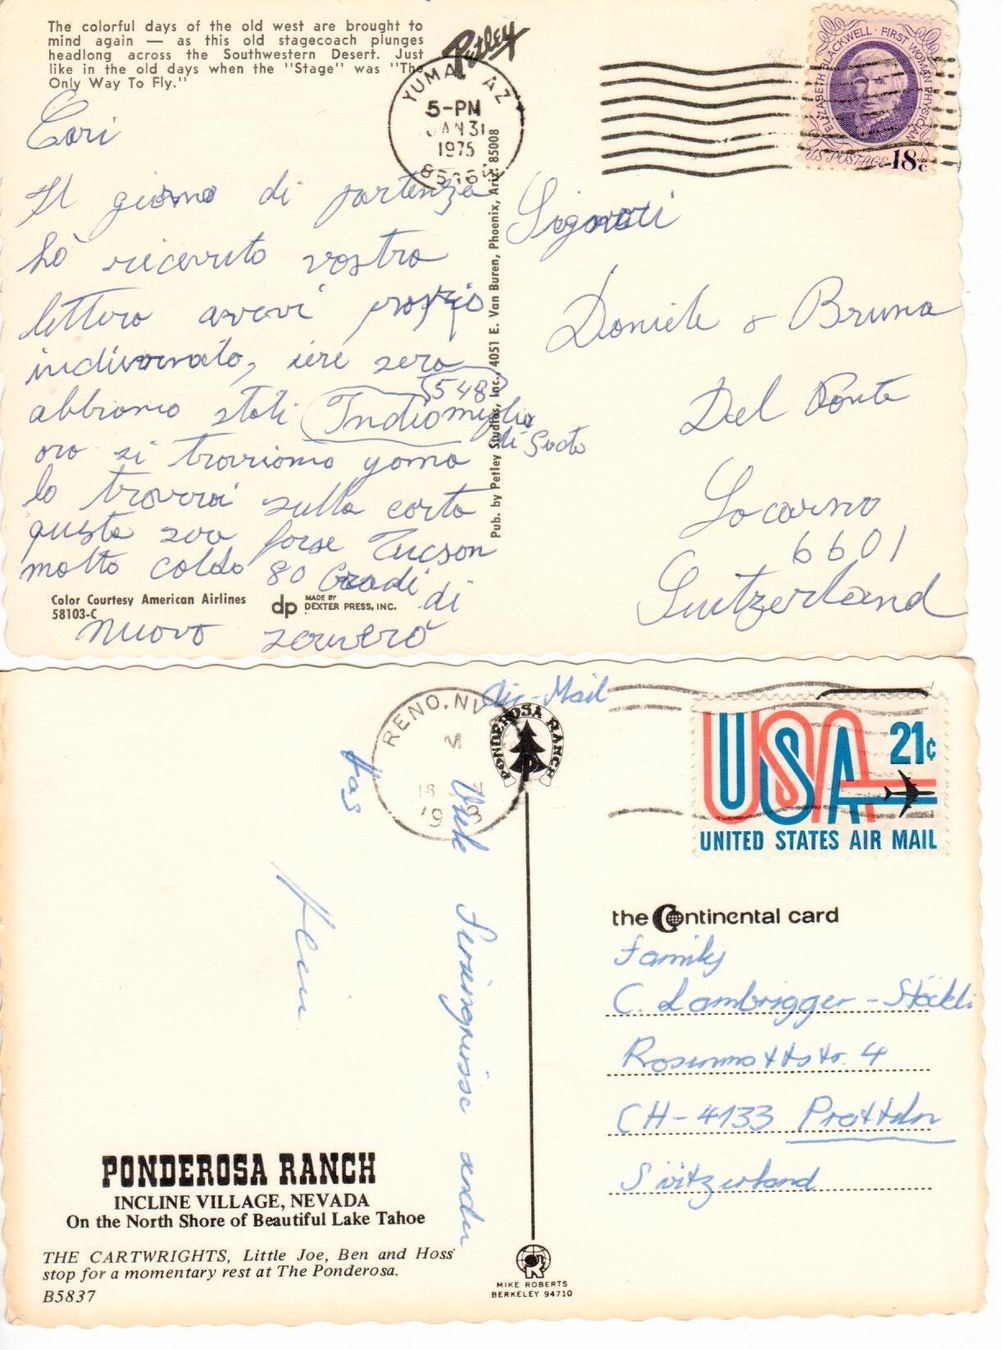 The colorful days of the old west are brought to
mind again — as this old stagecoach plunges
headlong across the Southwestern Desert. Just
like in the old days when the "Stage" was "The
Only Way To Fly."
Petley
YUMA, AZ
5-PM
JAN 31
1975
ELIZABETH BLACKWELL · FIRST WOMAN PHYSICIAN
U.S. POSTAGE 18c
Cari
Il giorno di partenza
hò ricevuto vostra
lettera avevi proprio
indivinato, ieri sera
abbiamo stati Indio miglia
548
di Susto
ora si troviamo yoma
lo troverai sulla carta
questa sera forse Tucson
molto caldo 80 Gradi di
nuovo
Pub. by Petley Studios, Inc., 4051 E. Van Buren, Phoenix, Ariz. 85008
Signori
Daniele & Bruna
Del Ponte
Locarno
6601
Switzerland
Color Courtesy American Airlines
58103-C
dp MADE BY
DEXTER PRESS, INC.
Air-Mail
RENO, NV
PONDEROSA RANCH
USA 21c
UNITED STATES AIR MAIL
the Continental card
Family
C. Lambrigger-Stöckli
Rosenmattstr. 4
CH-4133 Pratteln
Switzerland
Viele Feriengrüsse
PONDEROSA RANCH
INCLINE VILLAGE, NEVADA
On the North Shore of Beautiful Lake Tahoe
THE CARTWRIGHTS, Little Joe, Ben and Hoss
stop for a momentary rest at The Ponderosa.
B5837
MIKE ROBERTS
BERKELEY 94710